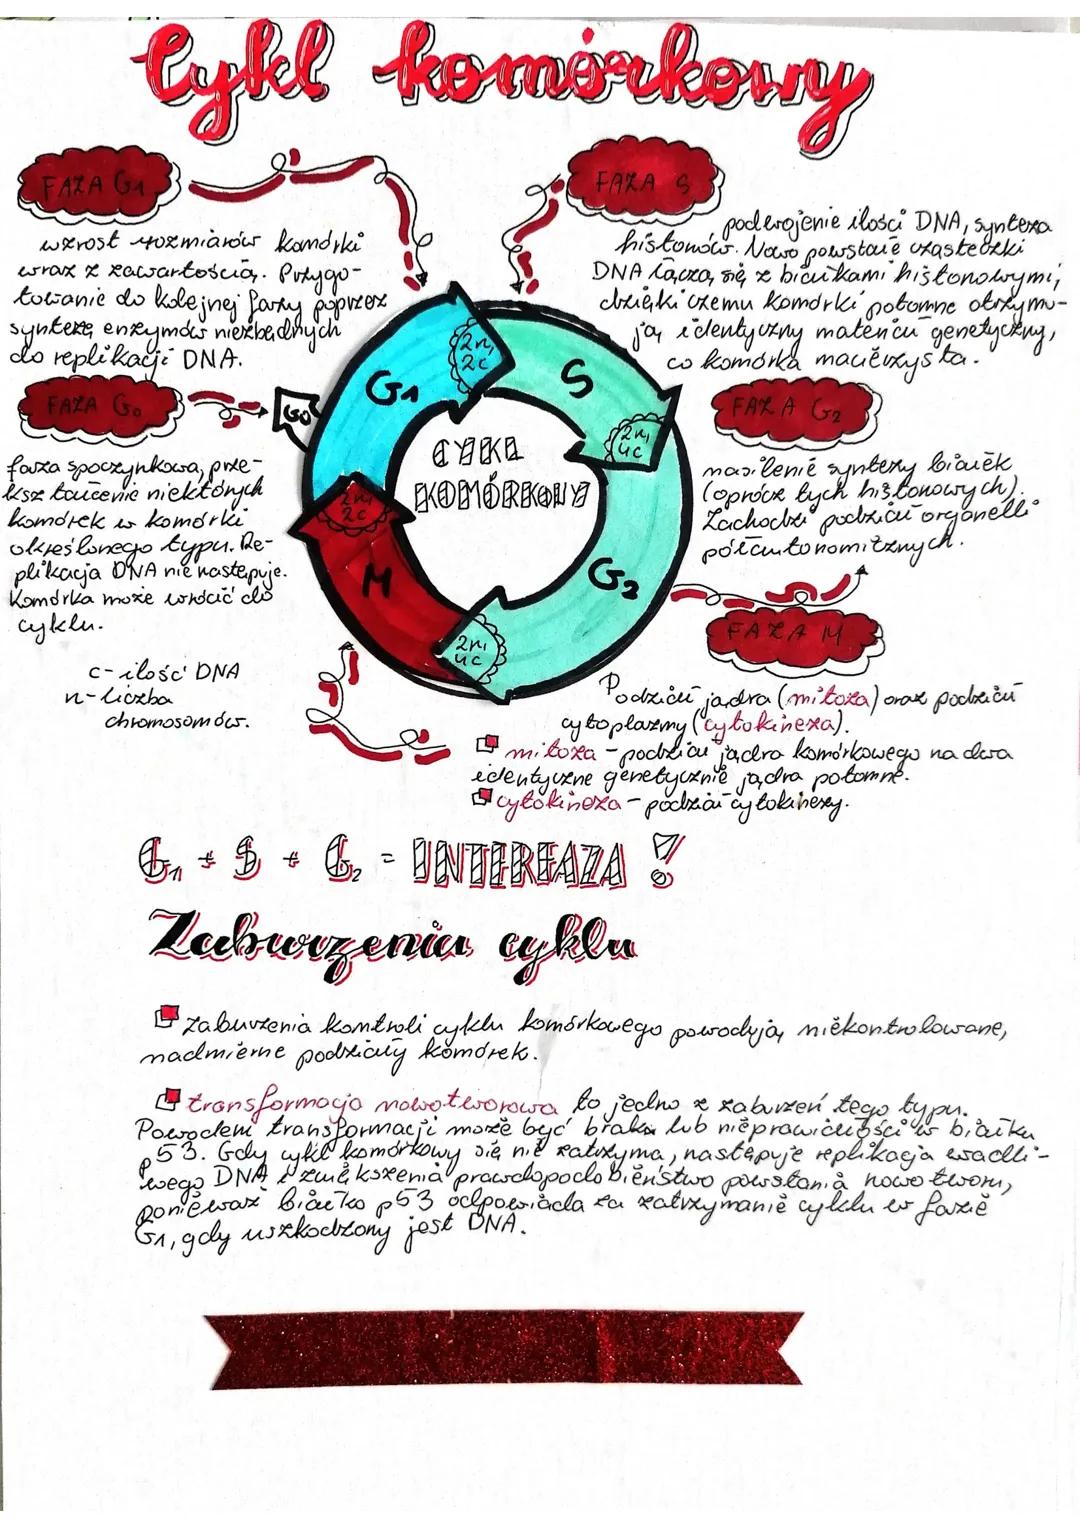 Cykl komórkowy
FAZA G1
wzrost rozmiarów komórki
wraz z zawartością. Przygo-
towanie do kolejnej fazy poprzez
syntezę enzymów niezbędnych
do replikacji DNA.
FAZA S
podwojenie ilości DNA, synteza
histonów. Nowo powstałe cząsteczki
DNA łączą się z białkami histonowymi,
dzięki czemu komórki potomne otrzymu-
ją identyczny materiał genetyczny,
co komórka macierzysta.
FAZA G0
faza spoczynkowa, prze-
kształcenie niektórych
komórek w komórki
określonego typu. Re-
plikacja DNA nie następuje.
Komórka może wrócić do
cyklu.
c - ilość DNA
n - liczba
chromosomów.
G0
G1
2n,
2c
S
2n,
4c
G2
2n,
4c
M
2n,
2c
CYKL
KOMÓRKOWY
FAZA G2
nasilenie syntezy białek
(oprócz tych histonowych).
Zachodzi podział organelli
półautonomicznych.
FAZA M
Podział jądra (mitoza) oraz podział
cytoplazmy (cytokineza).
mitoza - podział jądra komórkowego na dwa
identyczne genetycznie jądra potomne.
cytokineza - podział cytokinezy.
G1 + S + G2 = INTERFAZA!
Zaburzenia cyklu
zaburzenia kontroli cyklu komórkowego powodują niekontrolowane,
nadmierne podziały komórek.
transformacja nowotworowa to jedno z zaburzeń tego typu.
Powodem transformacji może być braka lub nieprawidłości w białku
p53. Gdy cykl komórkowy się nie zatrzyma, następuje replikacja wadli-
wego DNA i zwiększenia prawdopodobieństwo powstania nowotworu,
ponieważ białko p53 odpowiada za zatrzymanie cyklu w fazie
G1, gdy uszkodzony jest DNA.